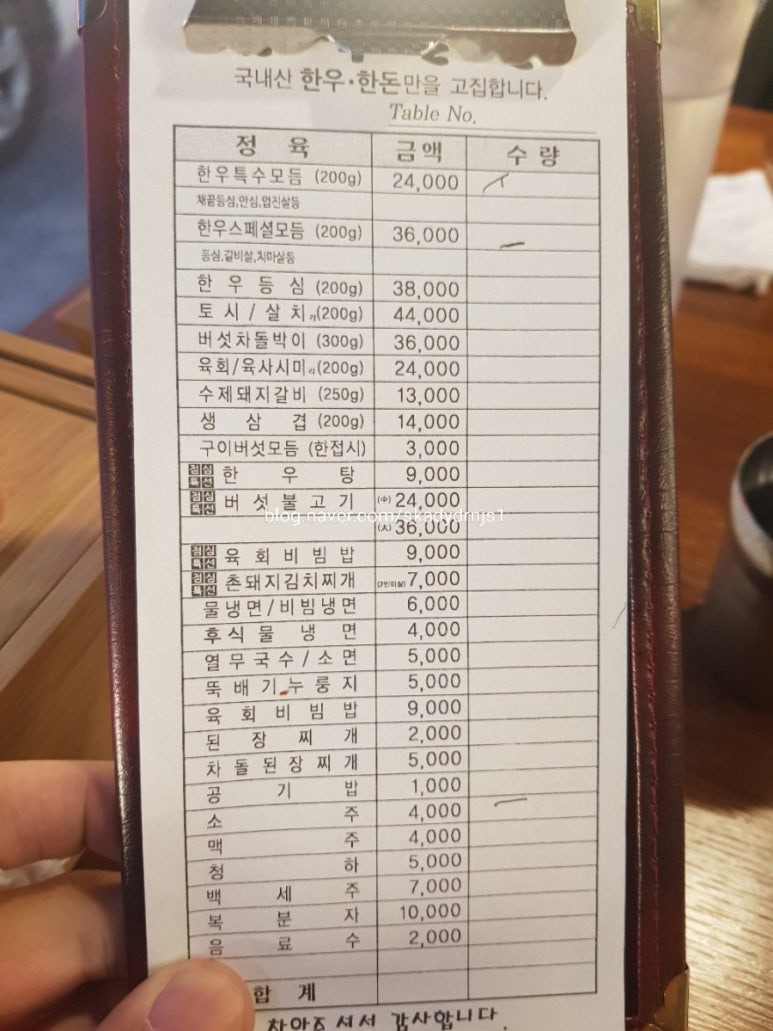 국내산 한우·한돈만을 고집합니다.
Table No.
정 육 금액 수량
한우특수모듬 (200g) 24,000
채끝등심,안심,업진살등
한우스페셜모듬 (200g) 36,000
등심,갈비살,치마살등
한우등심 (200g) 38,000
토시/살치 (200g) 44,000
버섯차돌박이 (300g) 36,000
육회/육사시미 (200g) 24,000
수제돼지갈비 (250g) 13,000
생삼겹 (200g) 14,000
구이버섯모듬 (한접시) 3,000
점심특선 한우탕 9,000
점심특선 버섯불고기 (中) 24,000
blog.naver.com/skadydrnjs1
(大) 36,000
점심특선 육회비빔밥 9,000
점심특선 촌돼지김치찌개 (2인이상) 7,000
물냉면/비빔냉면 6,000
후식물냉면 4,000
열무국수/소면 5,000
뚝배기누룽지 5,000
육회비빔밥 9,000
된장찌개 2,000
차돌된장찌개 5,000
공기밥 1,000
소주 4,000
맥주 4,000
청하 5,000
백세주 7,000
복분자 10,000
음료수 2,000
합계
찾아주셔서 감사합니다.